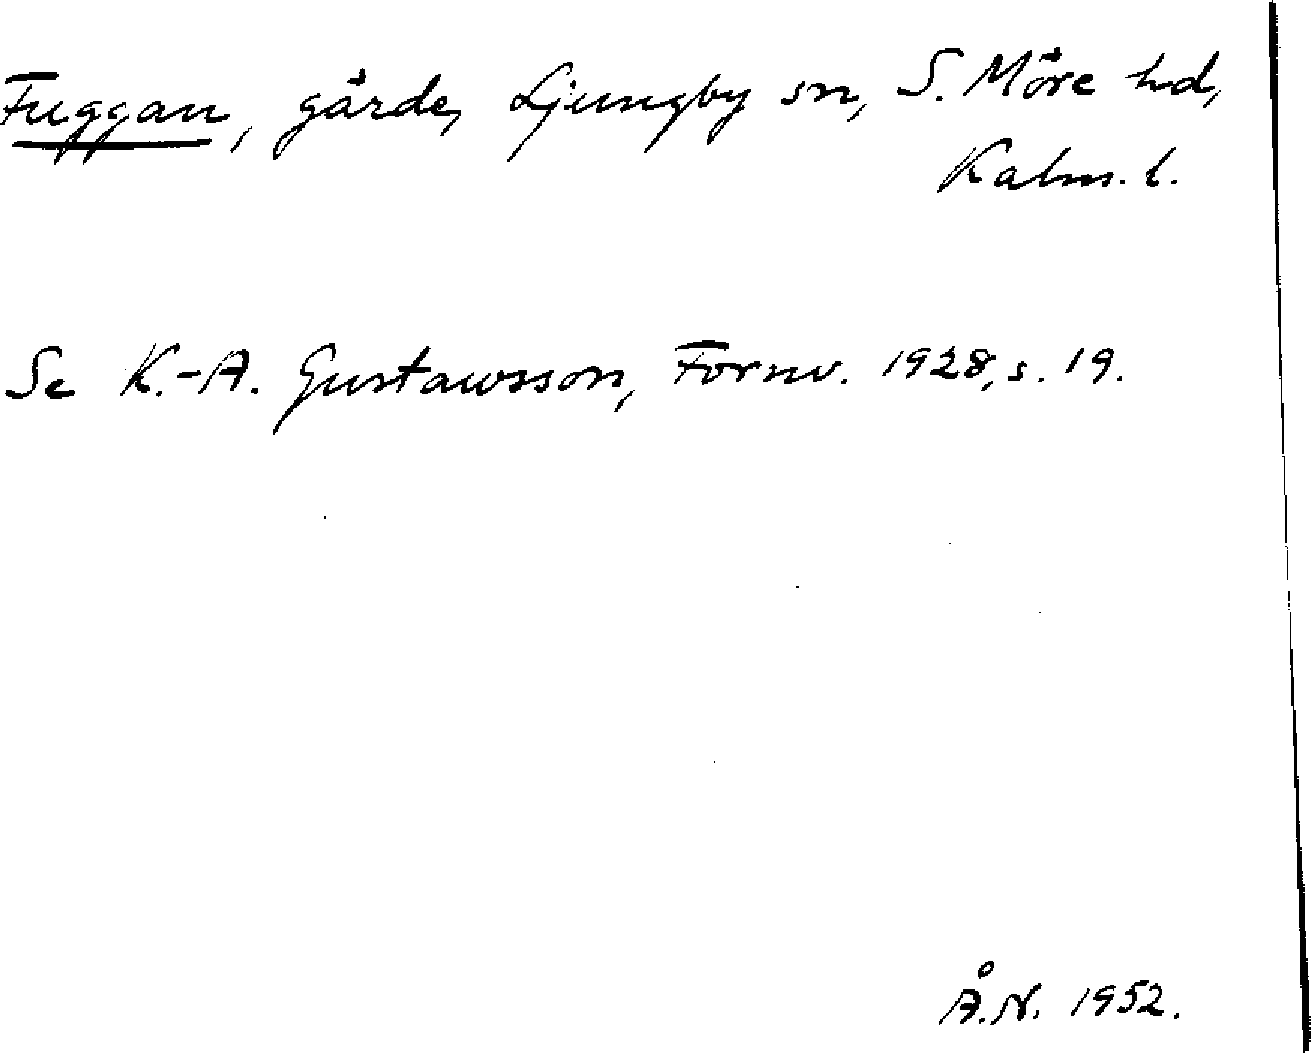 Fuggan, gärde, Ljungby sn, S. Möre hd,
Kalm. l.
Se K.-A. Gustawsson, Fornv. 1928, s. 19.
Å.N. 1952.